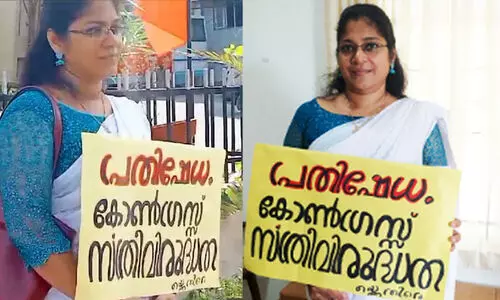 പ്രതിഷേധം
കോൺഗ്രസ്സ്
സ്ത്രീവിരുദ്ധത
പ്രതിഷേധം
കോൺഗ്രസ്സ്
സ്ത്രീവിരുദ്ധത